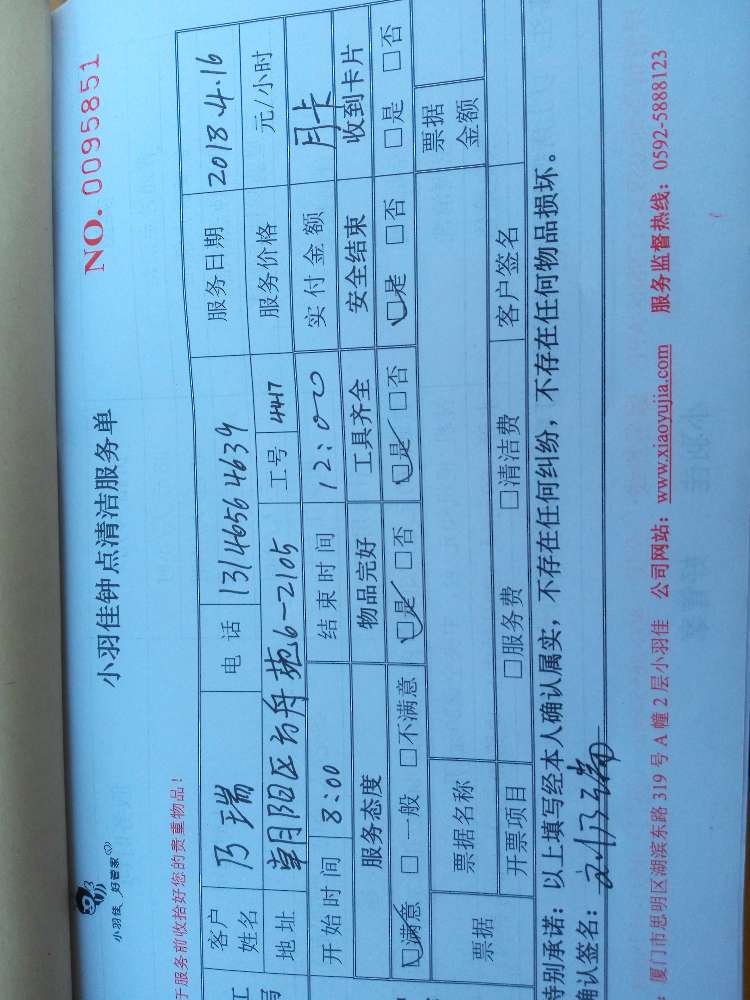 小羽佳 好管家
小羽佳钟点清洁服务单
NO. 0095851
于服务前收拾好您的贵重物品！
客户姓名 乃瑞 电话 13146564639 服务日期 2018.4.16
地址 朝阳区方舟苑6-2105 工号 4417 服务价格 元/小时
开始时间 8:00 结束时间 12:00 实付金额 月卡
服务态度 物品完好 工具齐全 安全结束 收到卡片
☑满意 □一般 □不满意 ☑是 □否 ☑是 □否 ☑是 □否 □是 □否
票据 票据名称 票据金额
开票项目 □服务费 □清洁费 客户签名
特别承诺：以上填写经本人确认属实，不存在任何纠纷，不存在任何物品损坏。
确认签名：
厦门市思明区湖滨东路 319 号 A 幢 2 层小羽佳 公司网站：www.xiaoyujia.com 服务监督热线：0592-5888123